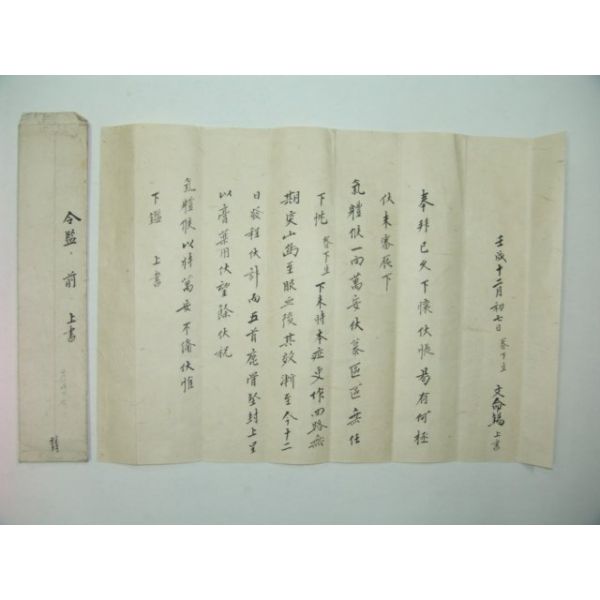 壬戌十二月初七日 眷下生 文命錫 上書
奉拜已久下懷伏悵曷有何極
伏未審辰下
氣體候一向萬安伏慕區區無任
下忱 眷下生 下來時本症更作四路無
期矣山鷄至服三後其效漸至今十二
日發程伏計而五首鹿滑堅封上呈
以膏藥用伏望餘伏祝
氣體候以時萬安不備伏惟
下鑑 上書
令監 前 上書